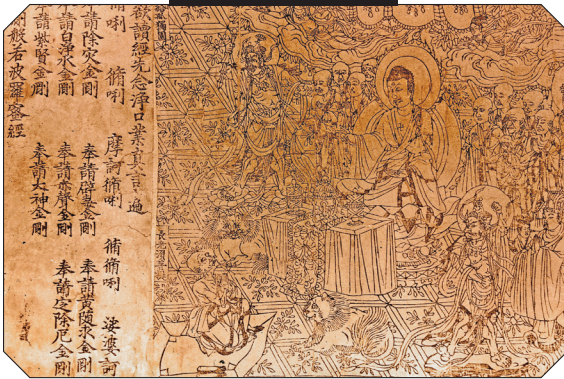 欲讀經先念淨口業真言一遍
脩唎 脩唎 摩訶脩唎 脩脩唎 娑婆訶
請除灾金剛 奉請辟毒金剛 奉請黃隨求金剛
請白淨水金剛 奉請赤聲金剛 奉請定除厄金剛
請紫賢金剛 奉請大神金剛
剛般若波羅蜜經